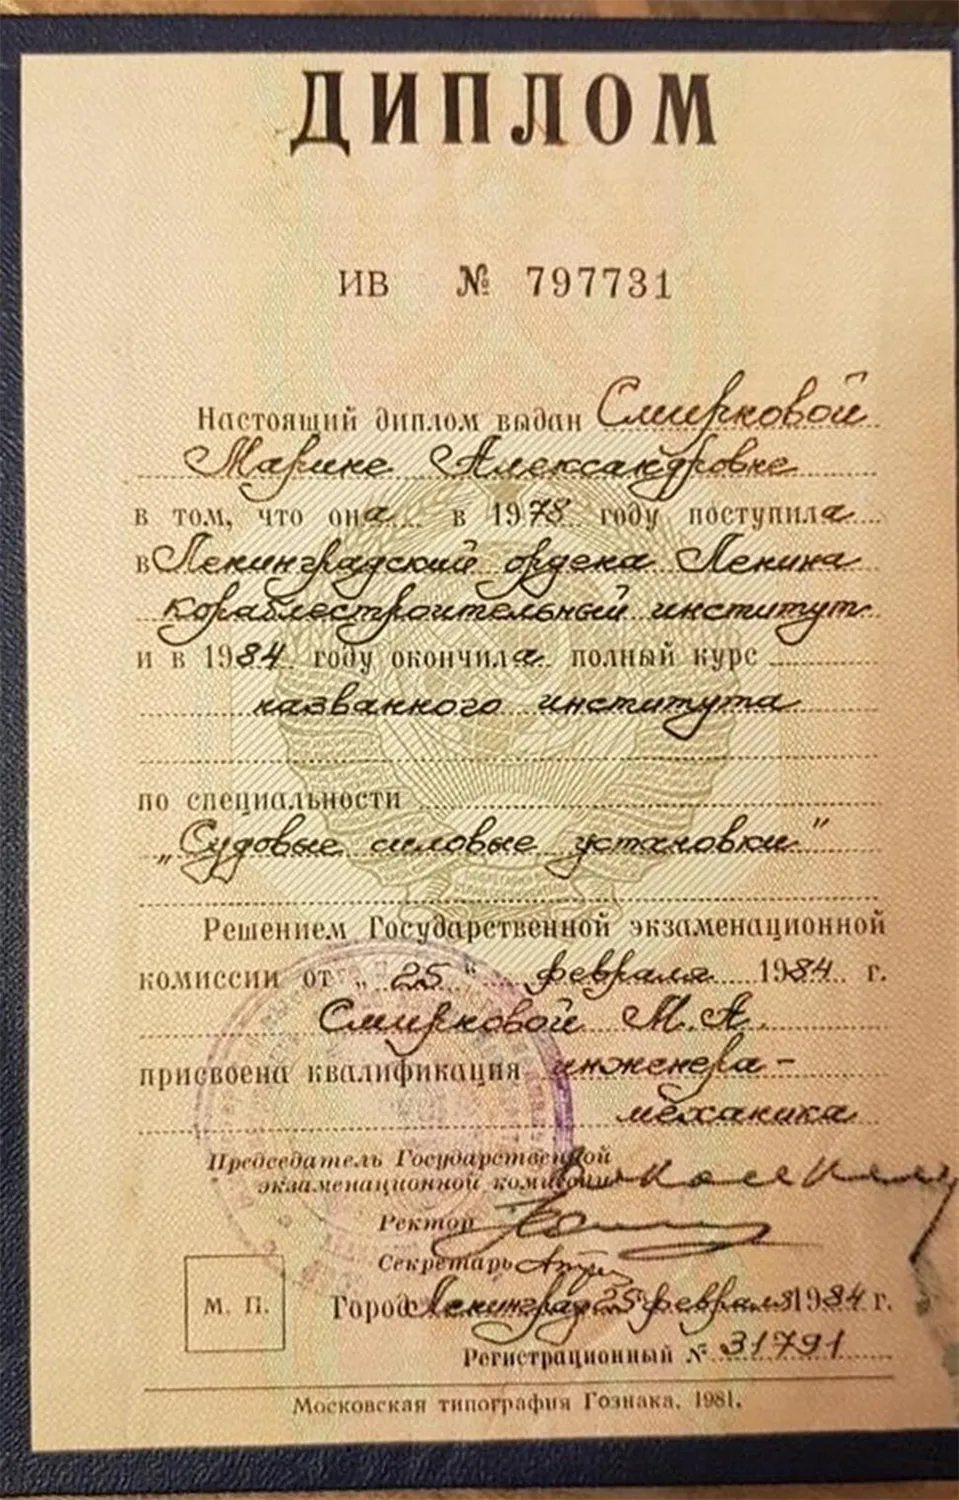 ДИПЛОМ
ИВ № 797731
Настоящий диплом выдан Смирновой
Марине Александровне
в том, что она в 1978 году поступила
в Ленинградский ордена Ленина
кораблестроительный институт
и в 1984 году окончила полный курс
названного института
по специальности
„Судовые силовые установки"
Решением Государственной экзаменационной
комиссии от „25" февраля 1984 г.
Смирновой М.А.
присвоена квалификация инженера-
механика
Председатель Государственной
экзаменационной комиссии
Ректор
Секретарь
Город Ленинград 25 февраля 1984 г.
М. П.
Регистрационный № 31791
Московская типография Гознака. 1981.